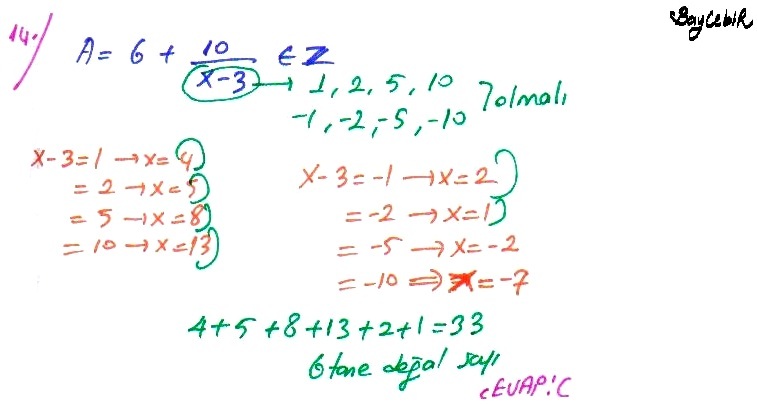 BayCebiR
14.
A = 6 + 10/(x-3) ∈ Z
→ 1, 2, 5, 10
-1, -2, -5, -10 olmalı
x-3 = 1 → x = 4
= 2 → x = 5
= 5 → x = 8
= 10 → x = 13
x-3 = -1 → x = 2
= -2 → x = 1
= -5 → x = -2
= -10 ⇒ x = -7
4+5+8+13+2+1=33
6 tane doğal sayı
CEVAP: C